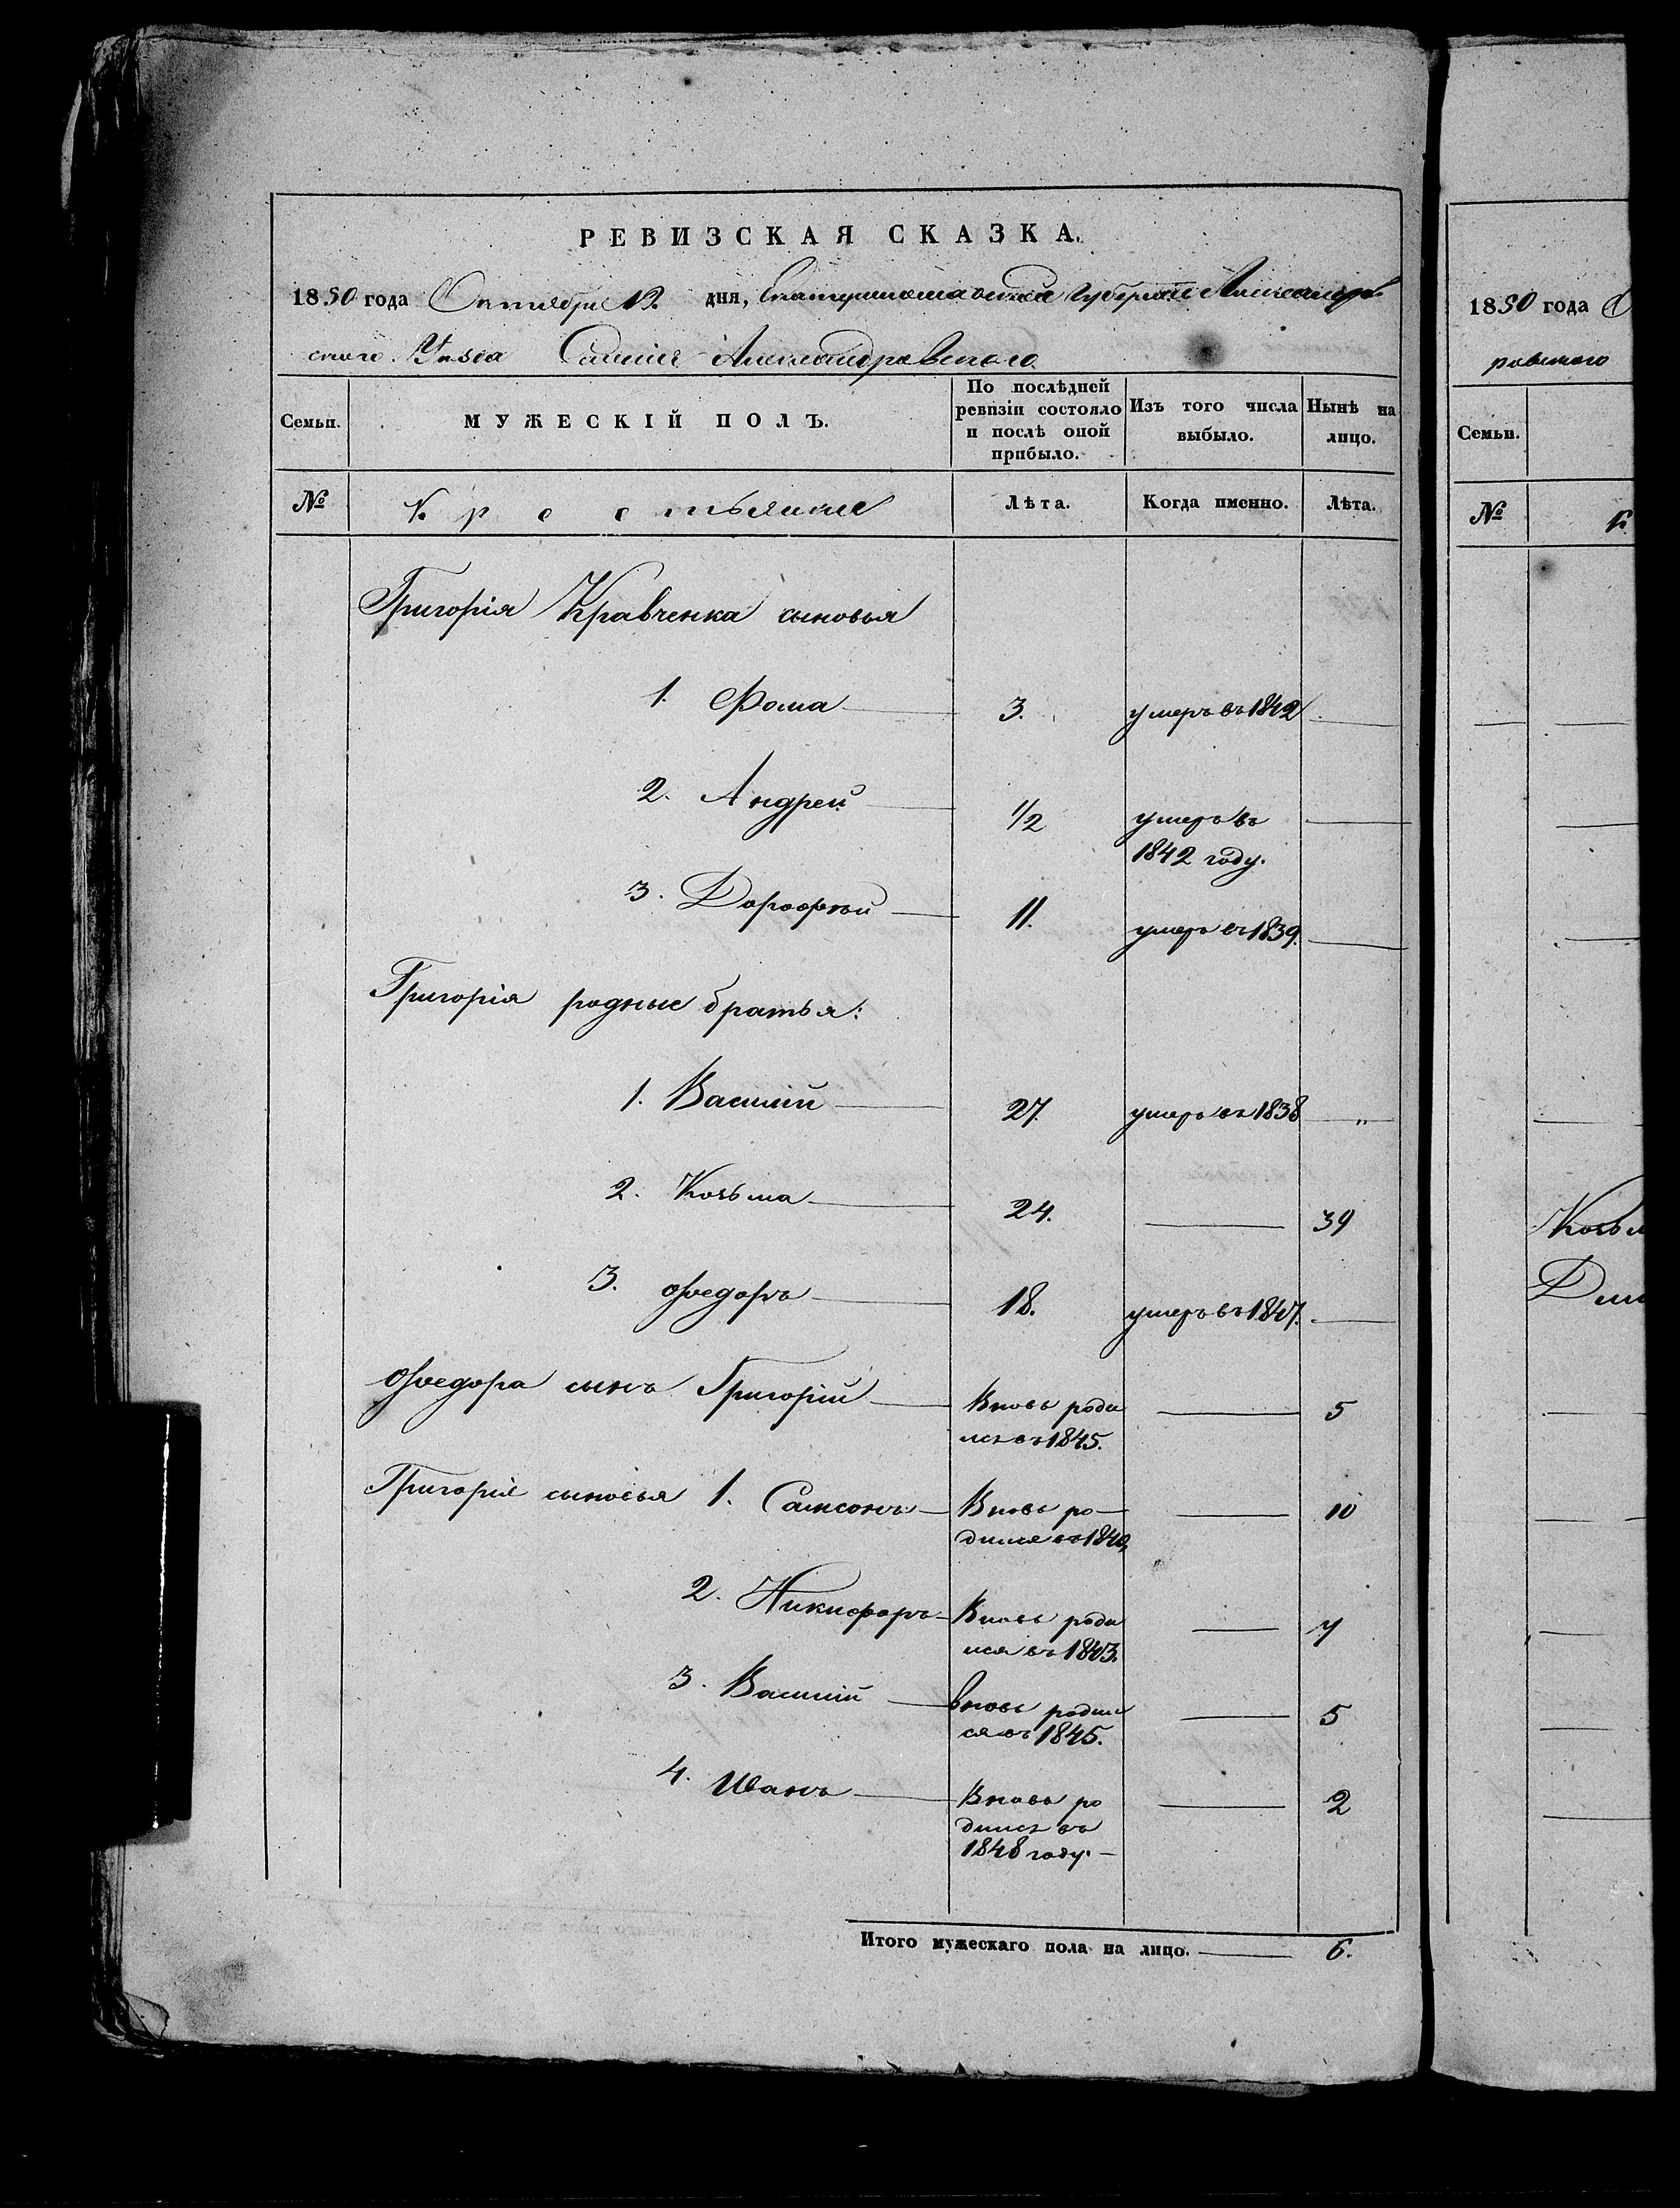 РЕВИЗСКАЯ СКАЗКА.
1850 года Октября 12. дня, Екатеринославской Губернии Александров
скаго Уезда Селенія Александровскаго
Семьи. МУЖЕСКІЙ ПОЛЪ. По послѣдней ревизіи состояло и послѣ оной прибыло. Изъ того числа выбыло. Нынѣ на лицо.
№ Крестьяне Лѣта. Когда именно. Лѣта.
Григорія Кравченка сыновья
1. Фома 3. умеръ въ 1842
2. Андрей 1/2 умеръ въ
1842 году.
3. Дорофей 11. умеръ въ 1839.
Григорія родные братья:
1. Василій 27. умеръ въ 1838 „
2. Козьма 24. 39
3. Федоръ 18. умеръ въ 1847.
Федора сынъ Григорій Вновь роди 5
лся въ 1845.
Григорія сыновья 1. Самсонъ Вновь ро- 10
дился въ 1840,
2. Никифоръ Вновь роди 7
лся въ 1843.
3. Василій вновь родил 5
ся въ 1845.
4. Иванъ Вновь ро 2
дился въ
1848 году.
Итого мужескаго пола на лицо. 6.
1850 года О
ровскаго
Семьи.
№ К
Козьм
Дми